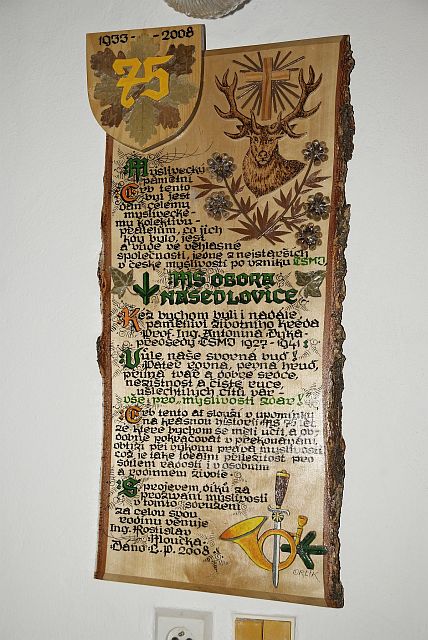 1933 - 2008
75
Myslivecký
památní
Erb tento
byl jest
dán celému
myslivecké-
mu kolektivu-
přátelům, co jich
kdy bylo, jest
a bude ve věhlasné
společnosti, jedné z nejstarších
v české myslivosti po vzniku ČSMJ
MS OBORA
NASEDLOVICE
Kéž bychom byli i nadále
pamětliví životního kréda
Prof. Ing. Antonína Dyka
předsedy ČSMJ 1927 - 1941:
Vůle naše svorná buď!
Páteř rovná, pevná hruď,
přímá tvář a dobré srdce,
nezištnost a čisté ruce,
ušlechtilých citů vár -
vše pro "myslivosti zdar"!
Erb tento ať slouží v upomínku
na krásnou historii MS 75 let,
ze které bychom se měli učit a ob-
dobně pokračovat v překonávání
obtíží při výkonu práva myslivosti
což je také ideální příležitost pro
sdílení radosti i v osobním
a rodinném životě
S projevem díků za
prožívání myslivosti
v tomto sdružení
za celou svou
rodinu věnuje
Ing. Rostislav
Hloučka.
Dáno L.P. 2008
ORLÍK